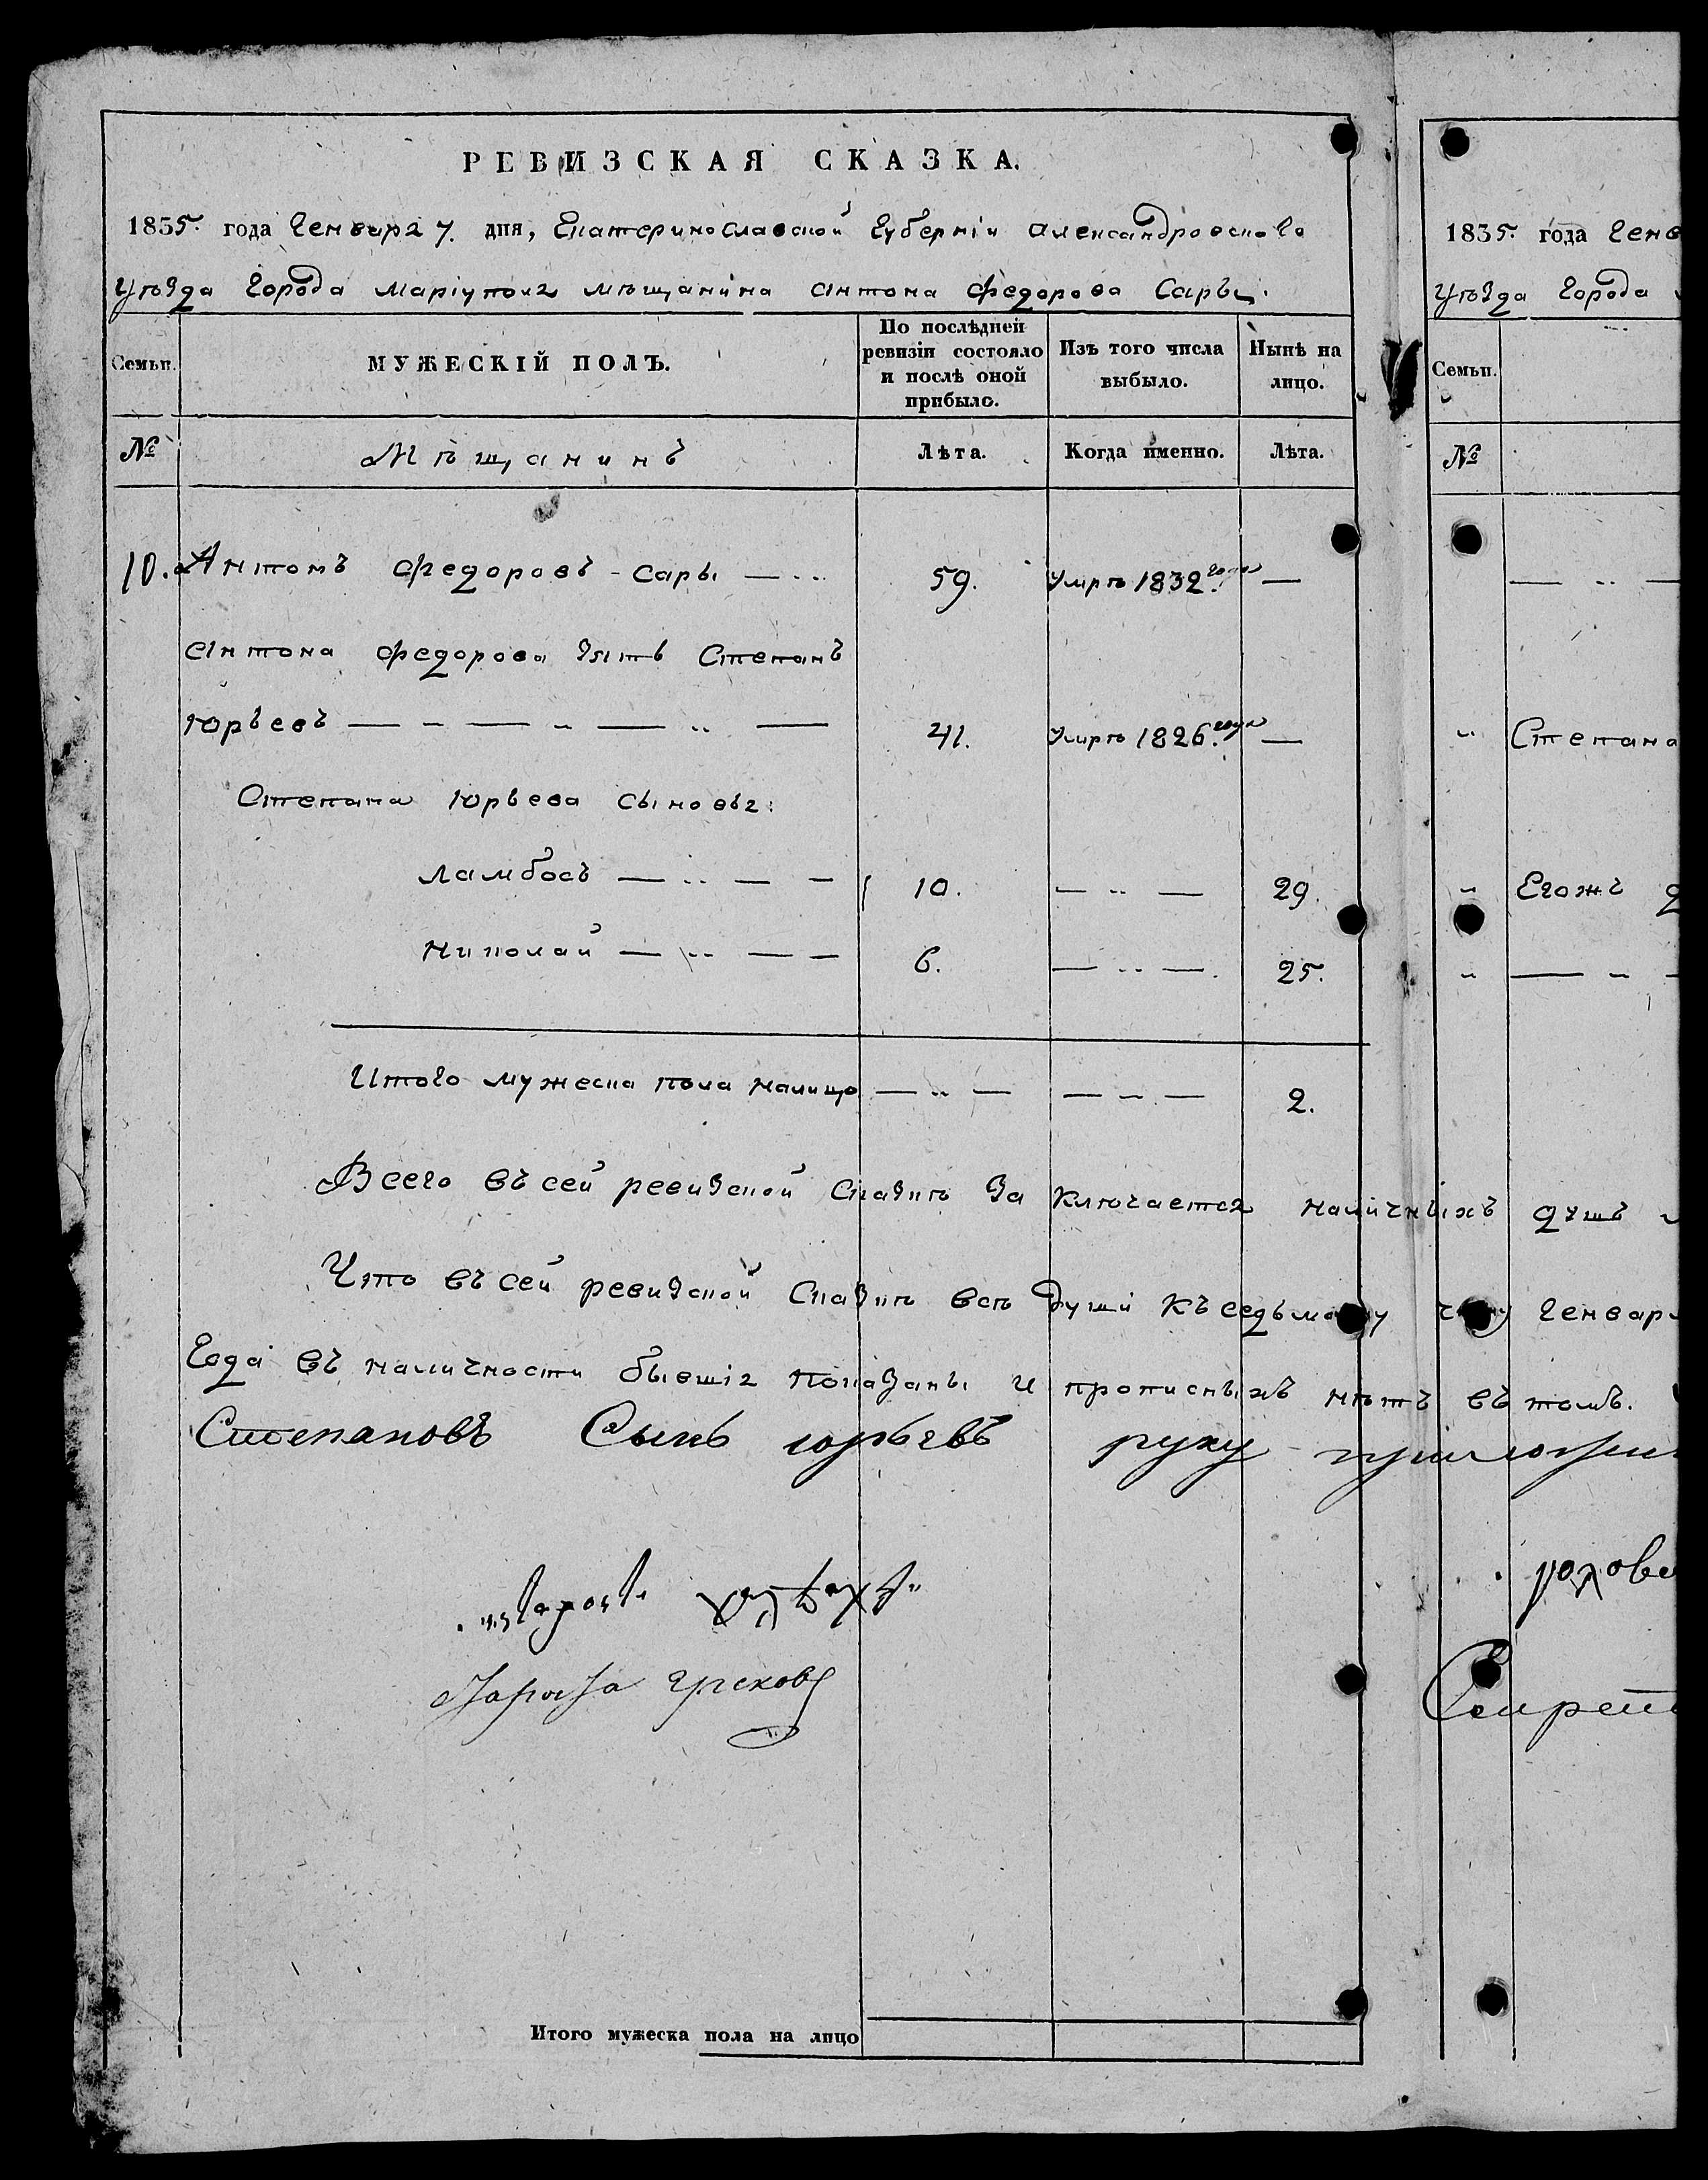 РЕВИЗСКАЯ СКАЗКА.
1835. года Генваря 7. дня, Екатеринославской Губерніи Александровскаго
уѣзда города Маріуполя мѣщанина Антона Федорова Сары.
Семьи.
МУЖЕСКІЙ ПОЛЪ.
По послѣдней ревизіи состояло и послѣ оной прибыло.
Изъ того числа выбыло.
Нынѣ на лицо.
№
Мѣщанинъ
Лѣта.
Когда именно.
Лѣта.
10. Антонъ Федоровъ - Сары — 59. умрѣ 1832. года —
Антона Федорова зять Степанъ
Юрьевъ — 41. умрѣ 1826. года —
Степана Юрьева сыновья:
Ламбосъ — 10. — 29.
Николай — 6. — 25.
Итого мужеска пола налицо — — 2.
Всего въ сей ревизской сказкѣ заключается наличныхъ душъ
Что въ сей ревизской сказкѣ всѣ души къ седьмому Генвар
года въ наличности бывшія показаны и прописныхъ нѣтъ въ томъ.
Степановъ Сынъ юрьевъ руку
Итого мужеска пола на лицо
1835. года Генв
уѣзда города
Семьи.
№
Степана
Егожъ